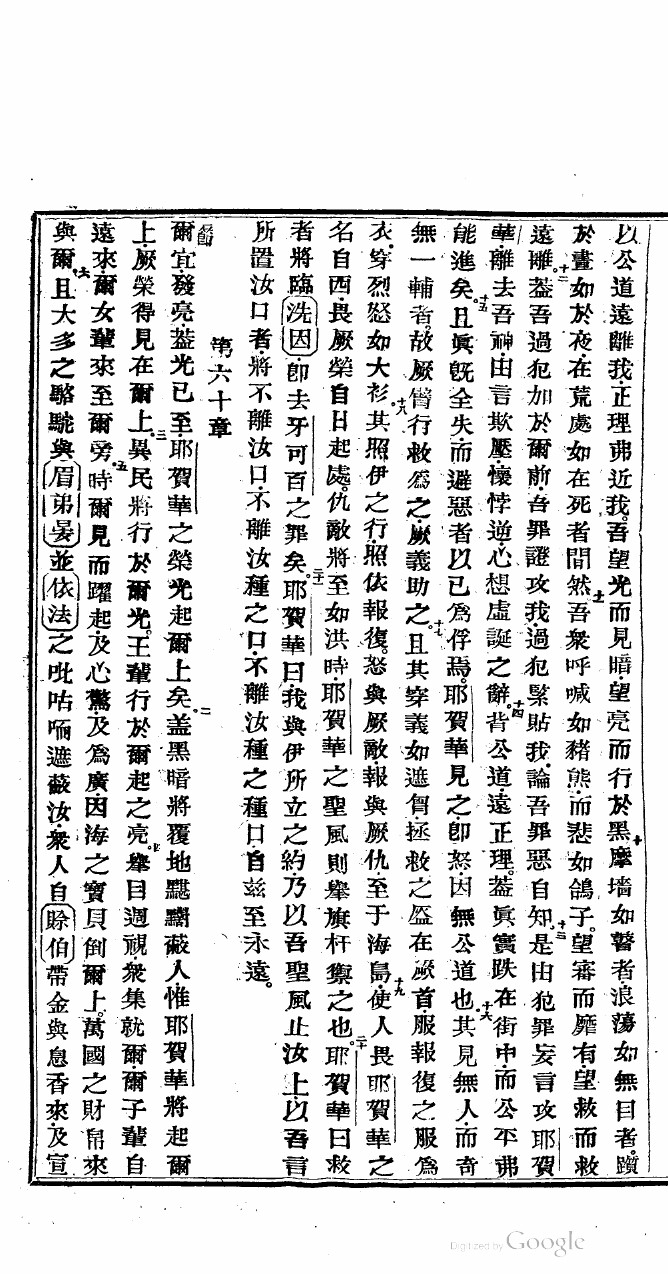 以公道遠離我正理弗近我吾望光而見暗望亮而行於黑十摩墻如瞽者浪蕩如無目者躓
於晝如於夜在荒處如在死者間然十一吾衆呼喊如豬熊而悲如鴿子望審而靡有望救而救
遠離十二葢吾過犯加於爾前吾罪證攻我過犯緊貼我論吾罪惡自知十三是由犯罪妄言攻耶賀
華離去吾神由言欺壓懷悖逆心想虛誕之辭十四背公道遠正理葢眞實跌在街中而公平弗
能進矣十五且眞旣全失而避惡者以己爲俘焉耶賀華見之卽怒因無公道也十六其見無人而奇
無一輔者故厥臂行救爲之厥義助之十七且其穿義如遮胷拯救之盔在厥首服報復之服爲
衣穿烈怒如大衫十八其照伊之行照依報復怒與厥敵報與厥仇至于海島十九使人畏耶賀華之
名自西畏厥榮自日起處仇敵將至如洪時耶賀華之聖風則舉旗杆禦之也二十耶賀華曰救
者將臨洗因卽去牙可百之罪矣二十一耶賀華曰我與伊所立之約乃以吾聖風止汝上以吾言
所置汝口者將不離汝口不離汝種之口不離汝種之種口自玆至永遠
第六十章
爾宜發亮葢光已至耶賀華之榮光起爾上矣二盖黑暗將覆地黮闇蔽人惟耶賀華將起爾
上厥榮得見在爾上三異民將行於爾光王輩行於爾起之亮四舉目週視衆集就爾爾子輩自
遠來爾女輩來至爾旁五時爾見而躍起及心驚及爲廣因海之寶貝倒爾上萬國之財帛來
與爾六且大多之駱駝與眉弟晏並依法之吡咕唡遮蔽汝衆人自賒伯帶金與息香來及宣
Digitized by Google